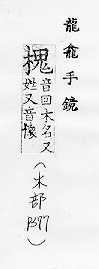 龍龕手鏡
槐音回木名又
姓又音懷
(木部
P377)